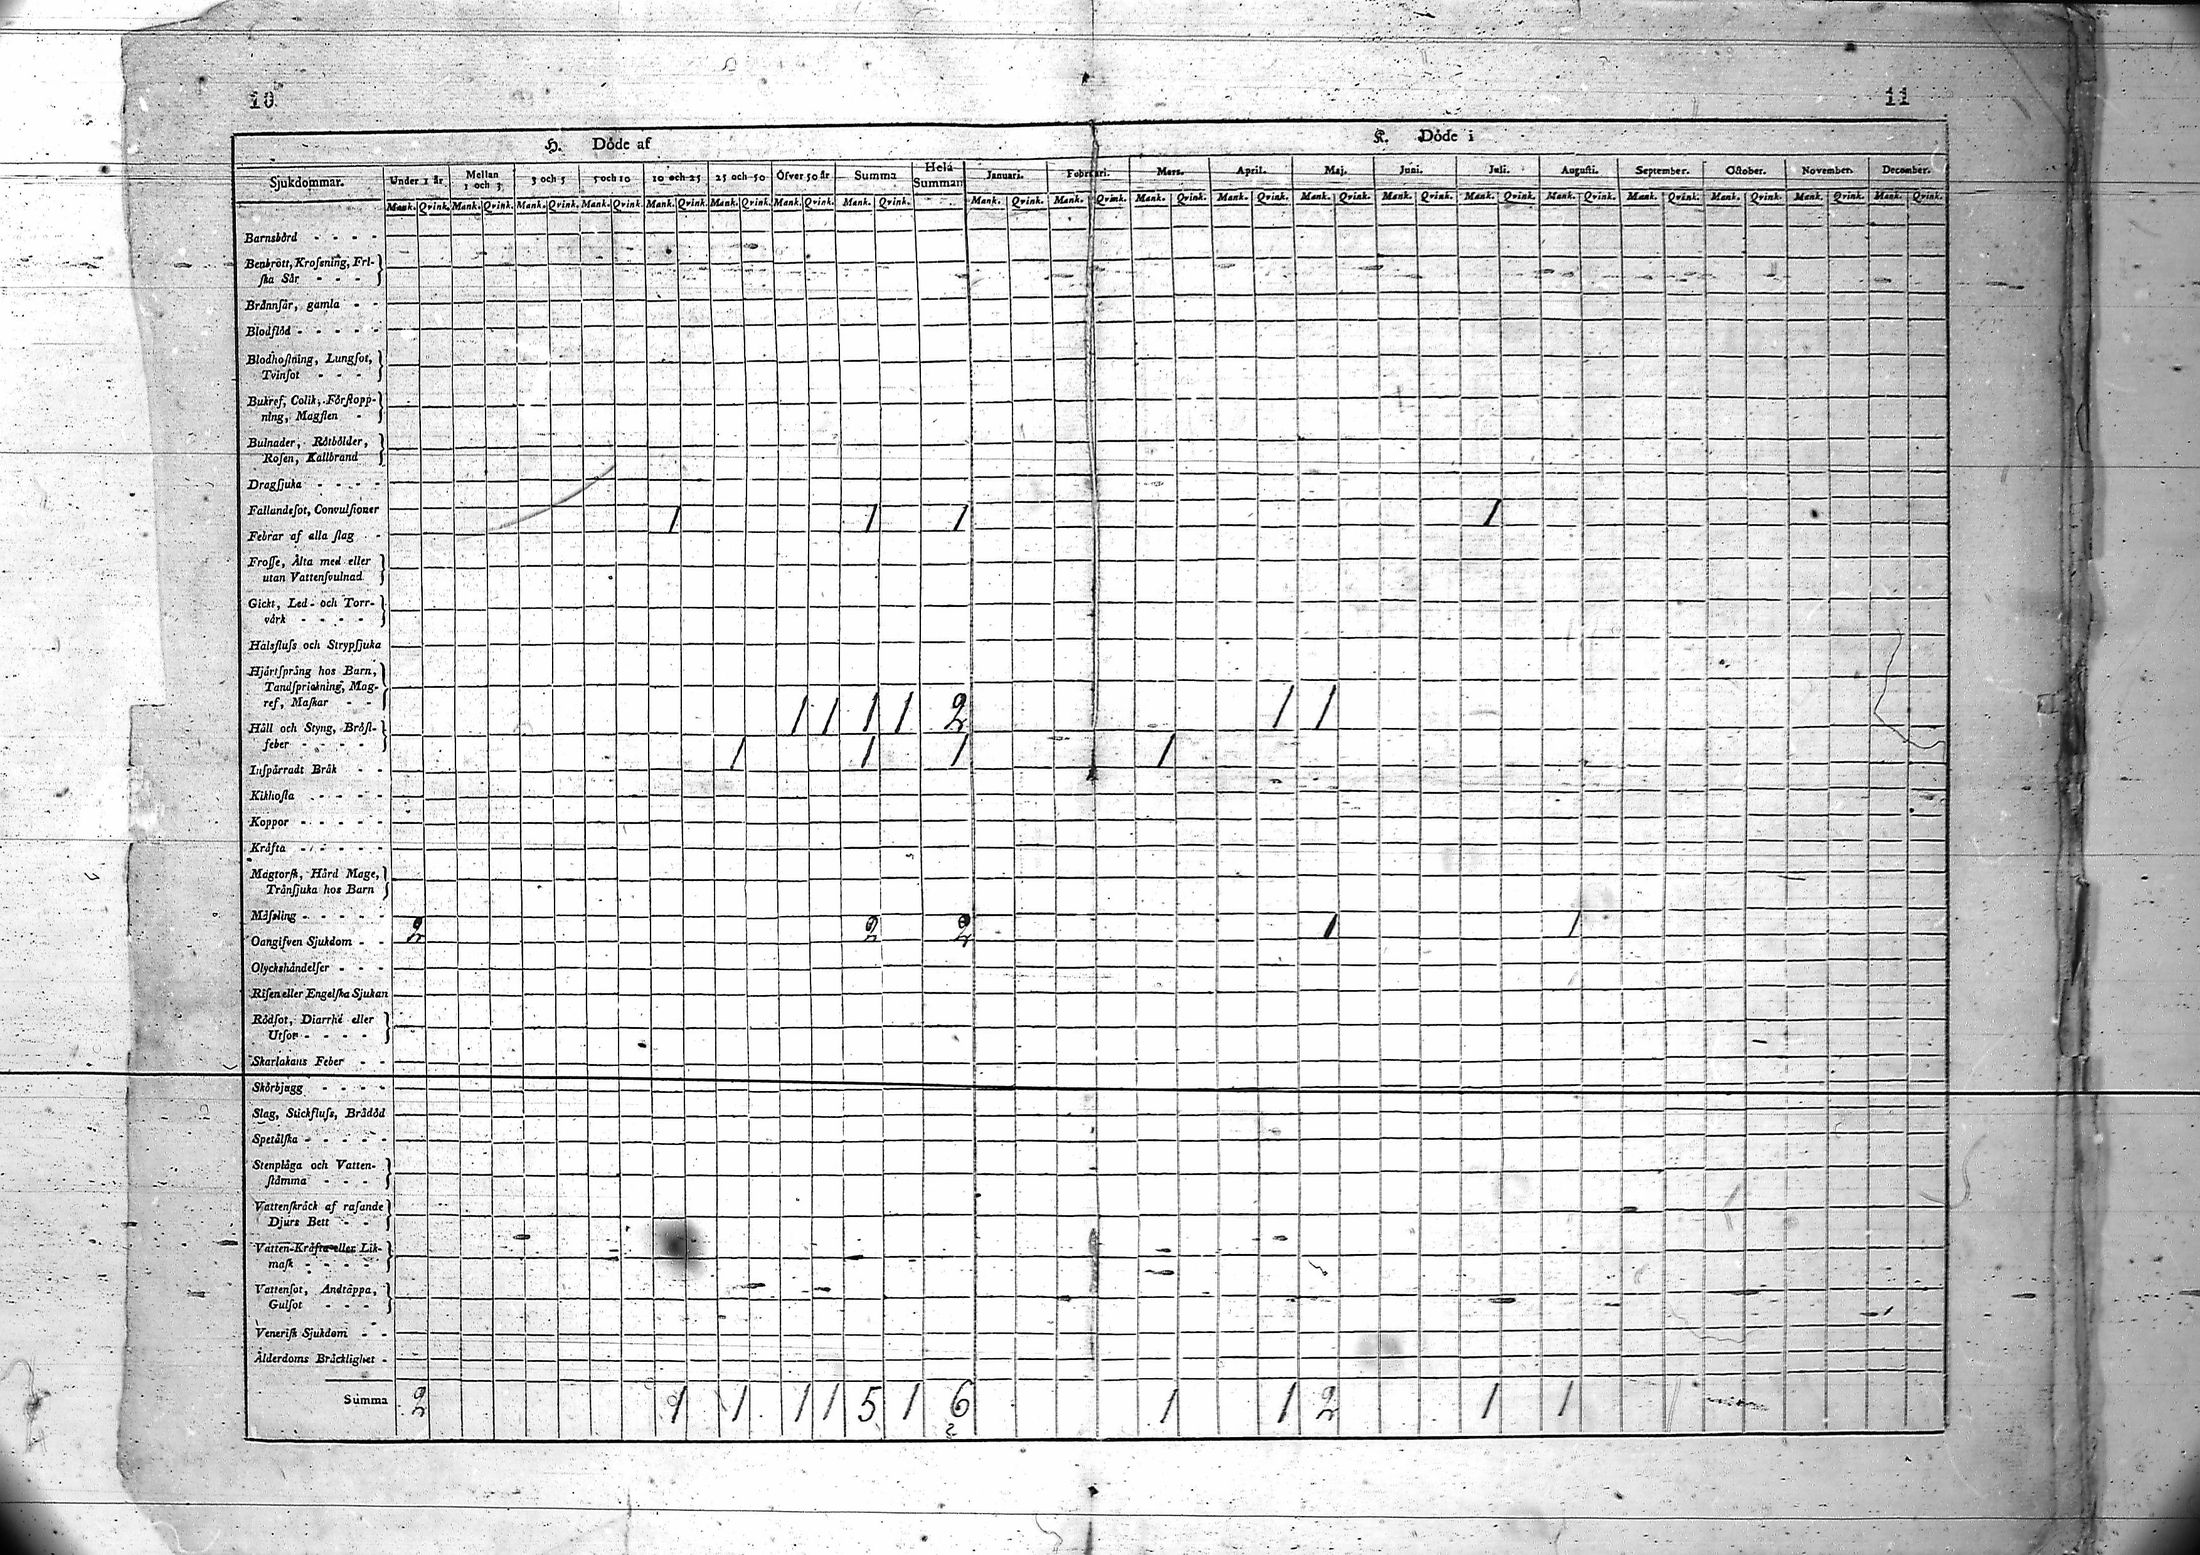 10
11
H. Döde af
K. Döde i
Sjukdommar. Under 1 år. Mellan 1 och 3. 3 och 5 5 och 10 10 och 25 25 och 50 Öfver 50 år Summa Hela Summan Januari. Februari. Mars. April. Maj. Juni. Juli. Augusti. September. October. November. December.
Mank. Qvink. Mank. Qvink. Mank. Qvink. Mank. Qvink. Mank. Qvink. Mank. Qvink. Mank. Qvink. Mank. Qvink. Mank. Qvink. Mank. Qvink. Mank. Qvink. Mank. Qvink. Mank. Qvink. Mank. Qvink. Mank. Qvink. Mank. Qvink. Mank. Qvink. Mank. Qvink. Mank. Qvink. Mank. Qvink.
Barnsbörd - - - -
Benbrott, Krossning, Fri-
ska Sår - - -
Brännsår, gamla - -
Blodflöd - - - - -
Blodhostning, Lungsot,
Tvinsot - - - -
Bukref, Colik, Förstopp-
ning, Magsten -
Bulnader, Rötbölder,
Rosen, Kallbrand
Dragsjuka - - - -
Fallandesot, Convulsioner
Febrar af alla slag - - 1 1 1 1
Frosse, Älta med eller
utan Vattensvulnad
Gickt, Led- och Torr-
värk - - - -
Halsfluss och Strypsjuka
Hjärtsprång hos Barn,
Tandsprickning, Mag-
ref, Maskar - -
Håll och Styng, Bröst-
feber - - - - 1 1 1 1 2 1 1
Inspärradt Bråk - - 1 1 1 1
Kikhosta - - - -
Koppor - - - - -
Kräfta - - - - -
Magtorsk, Hård Mage,
Tränsjuka hos Barn
Mässling - - - - -
Oangifven Sjukdom - - 2 2 2 1 1
Olyckshändelser - - -
Risen eller Engelska Sjukan
Rödsot, Diarrhé eller
Utsot - - - -
Skarlakans Feber - -
Skörbjugg - - - -
Slag, Stickfluss, Brådöd
Spetälska - - - - -
Stenplåga och Vatten-
stämma - - -
Vattenskräck af rasande
Djurs Bett - -
Vatten-Kräfta eller Lik-
mask - - - - -
Vattensot, Andtäppa,
Gulsot - - -
Venerisk Sjukdom - -
Ålderdoms Bräcklighet -
Summa 2 1 1 1 1 5 1 6 1 1 2 1 1